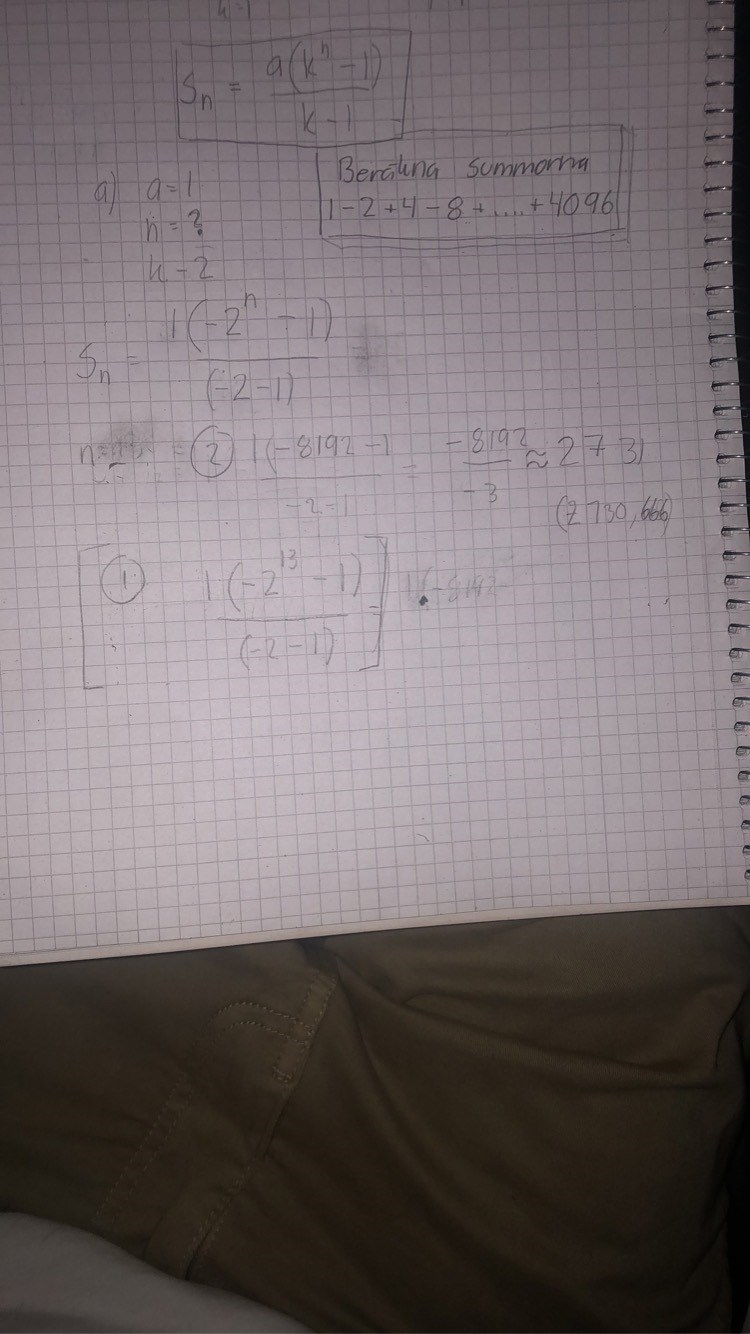 Sₙ = a(kⁿ - 1) / k - 1
Beräkna summorna
1 - 2 + 4 - 8 + ..... + 4096
a) a = 1
n = ?
k - 2
Sₙ = 1(-2ⁿ - 1) / (-2 - 1) =
= ② 1(-8192 - 1 / -2 - 1 = -8192 / -3 ≈ 2731
(2730,666)
[ ① 1(-2¹³ - 1) / (-2 - 1) ] = 1(-8192